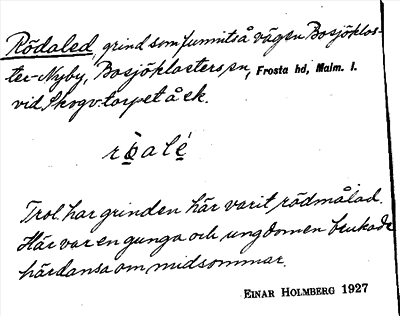 Rödaled, grind som funnits å vägen Bosjöklos-
ter-Nyby, Bosjöklosters sn, Frosta hd, Malm. l.
vid Skogv.torpet å ek.
Trol. har grinden här varit rödmålad.
Här var en gunga och ungdomen brukade
här dansa om midsommar.
EINAR HOLMBERG 1927